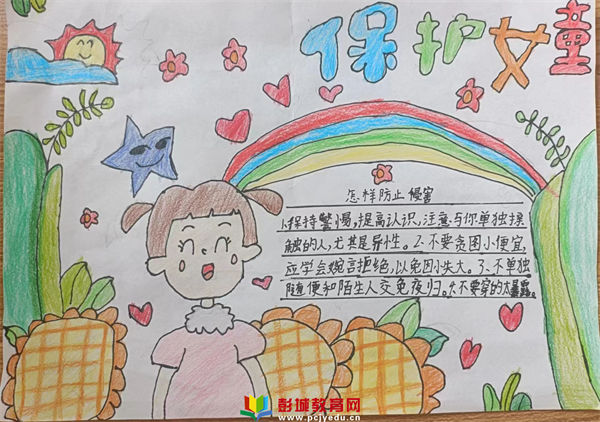 保护女童
怎样防止侵害
1.保持警惕,提高认识,注意与你单独接
触的人,尤其是异性。2.不要贪图小便宜,
应学会婉言拒绝,以免因小失大。3.不单独
随便和陌生人交
夜归。4.不要穿的太暴露。
彭城教育网
www.pcjyedu.cn